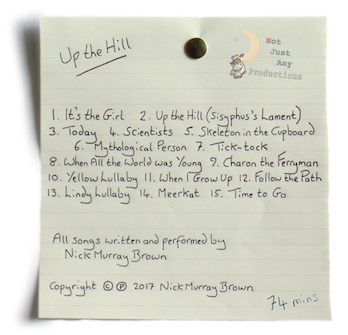 Up the Hill
Not
Just
Any
Productions
1. It's the Girl 2. Up the Hill (Sisyphus's Lament)
3. Today 4. Scientists 5. Skeleton in the Cupboard
6. Mythological Person 7. Tick-tock
8. When All the World was Young 9. Charon the Ferryman
10. Yellow Lullaby 11. When I Grow Up 12. Follow the Path
13. Lindy Lullaby 14. Meerkat 15. Time to Go
All songs written and performed by
Nick Murray Brown
Copyright © ℗ 2017 Nick Murray Brown
74 mins